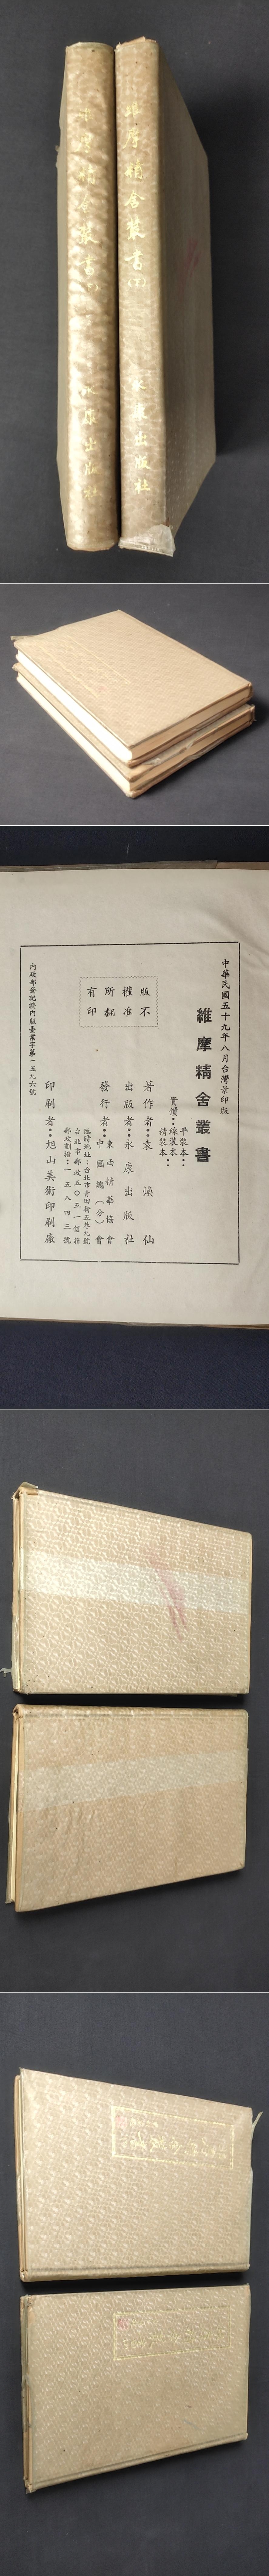 維摩精舍叢書(上)
永康出版社
維摩精舍叢書(下)
永康出版社
中華民國五十九年八月台灣景印版
維摩精舍叢書
平裝本：
實價：線裝本：
精裝本：
著作者：袁煥仙
出版者：永康出版社
發行者：東西精華協會
中國總(分)會
臨時地址：台北市青田街五巷九號
台北市郵政五〇五一信箱
郵政劃撥：一五八四三號
印刷者：旭山美術印刷廠
內政部登記證內版臺業字第一五九六號
版權所有
不准翻印